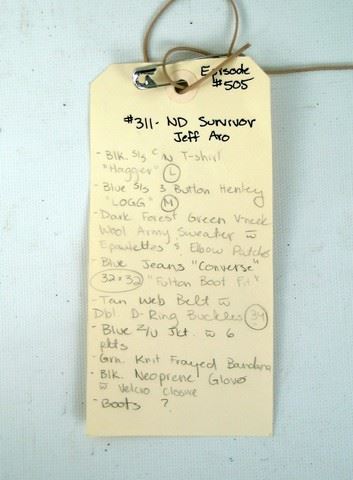 Episode
#505
#311- ND Survivor
Jeff Aro
- Blk. S/S C/N T-shirt
"Hagger" L
- Blue S/S 3 Button Henley
"LOGG" M
- Dark Forest Green V-neck
Wool Army Sweater w
Epaulettes & Elbow Patches
- Blue Jeans "Converse"
32x32 "Fulton Boot Fit"
- Tan Web Belt w
Dbl. D-Ring Buckles 34
- Blue Z/U Jkt. w 6
pkts
- Grn. Knit Frayed Bandana
- Blk. Neoprene Glove
w Velcro Closure
- Boots ?